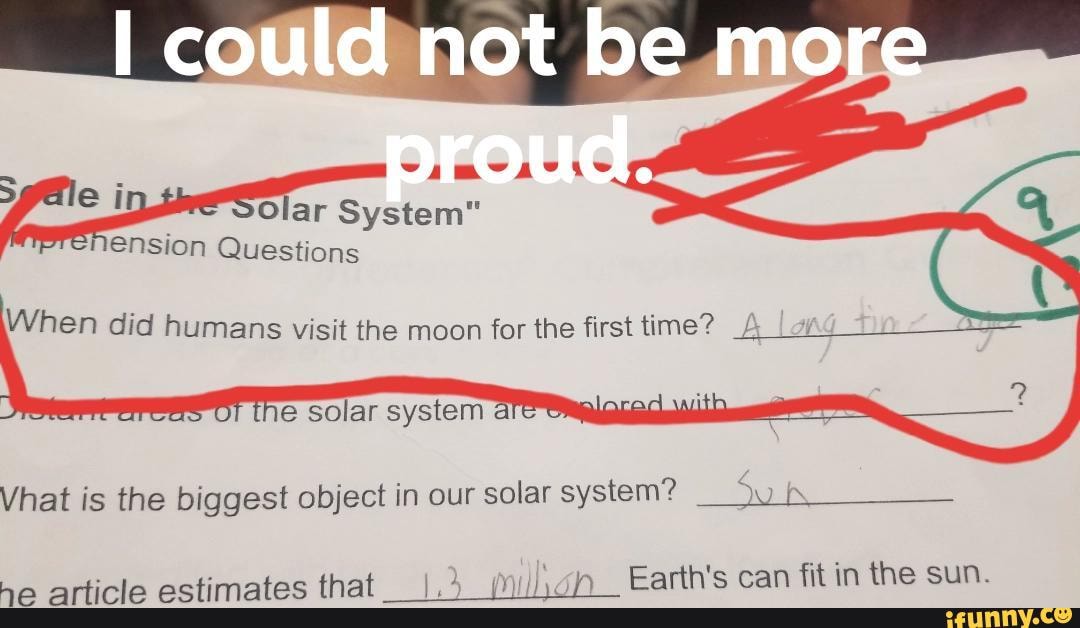 I could not be more
proud.
Scale in the Solar System"
Comprehension Questions
9
When did humans visit the moon for the first time? A long time ago
Distant areas of the solar system are explored with probes ?
What is the biggest object in our solar system? Sun
he article estimates that 1.3 million Earth's can fit in the sun.
ifunny.co